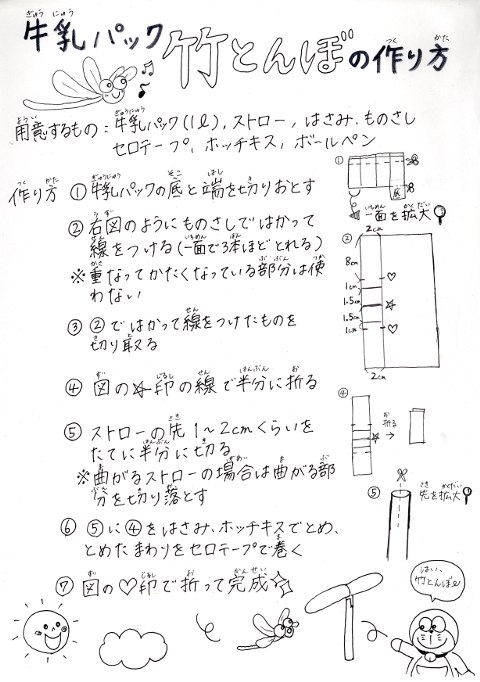 牛乳パック竹とんぼの作り方
用意するもの:牛乳パック(1ℓ),ストロー,はさみ,ものさし
セロテープ,ホッチキス,ボールペン
作り方 ①牛乳パックの底と端を切りおとす
②右図のようにものさしではかって
線をつける(一面で3本ほどとれる)
※重なってかたくなっている部分は使
わない
③②ではかって線をつけたものを
切り取る
④図の☆印の線で半分に折る
⑤ストローの先1~2cmくらいを
たてに半分に切る
※曲がるストローの場合は曲がる部
分を切り落とす
⑥⑤に④をはさみ、ホッチキスでとめ、
とめたまわりをセロテープで巻く
⑦図の♡印で折って完成☆
①
底
一面を拡大
②
2cm
8cm
1cm
1.5cm
1.5cm
1cm
2cm
④
折る
⑤
先を拡大
はい、
竹とんぼ